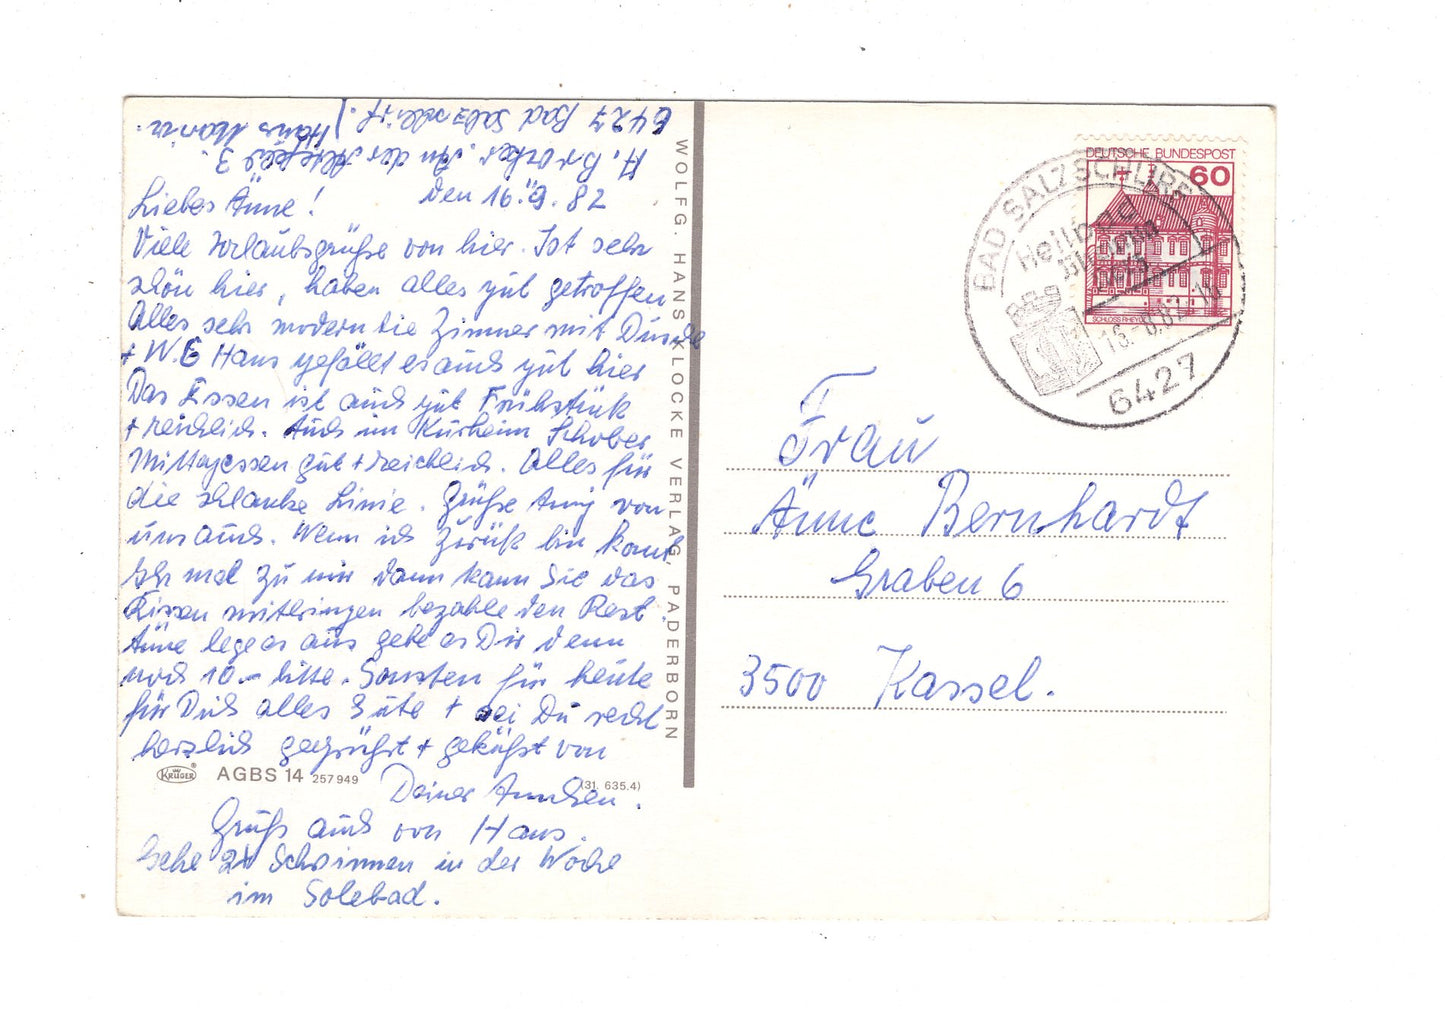 6427 Bad Salzschlirf.
A. Brocker. An der 3.
den 16. 9. 82
Liebes Änne!
Viele Urlaubsgrüße von hier. Ist sehr
schön hier, haben alles gut getroffen
Alles sehr modern die Zimmer mit Dusche
+ W.C Hans gefällt es auch gut hier
Das Essen ist auch gut Frühstück
+ reichlich. Auch im Kurheim Schober
Mittagessen gut + reichlich. Alles für
die schlanke Linie. Grüße von
uns auch. Wenn ich zurück bin kommt
Ihr mal zu mir dann kann Sie das
Kissen mitbringen bezahle den Rest.
Änne lege es aus gebe es Dir denn
noch 10.- bitte. Sonsten für heute
für Dich alles Gute + sei Du recht
herzlich gegrüßt + geküßt von
Deiner Ännchen.
Gruß auch von Hans.
Gehe 2x Schwimmen in der Woche
im Solebad.
KRÜGER
AGBS 14 257 949
(31. 635.4)
WOLFG. HANS KLOCKE VERLAG, PADERBORN
DEUTSCHE BUNDESPOST
60
SCHLOSS RHEYDT
BAD SALZSCHLIRF
Heilbad
6427
Frau
Änne Bernhardt
Graben 6
3500 Kassel.